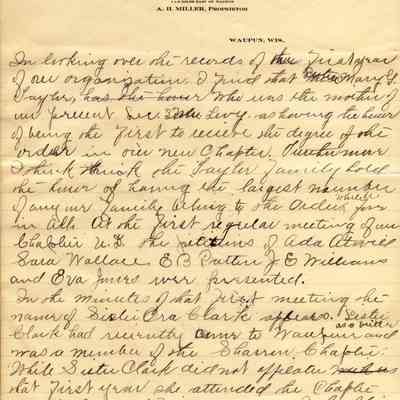 A. H. MILLER, PROPRIETOR
WAUPUN, WIS.
In looking over the records of the First year
of our organization. I find that Mary G.
Taylor, has the honor who was the mother of
our present Sec Levy. as having the honor
of being the First to recieve the degree of the
order in our new Chapter. Furthermore
I think the Taylor family hold
the honor of having the largest number
of any our family belong to the Order,
in all. At the First regular meeting of our
Chapter U.D. the petitions of Ada Atwill
Sara Wallace, E B Patten J. E Williams
and Eva Jones were presented.
In the minutes of that first meeting the
name of Sister Ora Clark appears. Sister
Clark had recently come to Waupun and
was a member of the Chapter.
While Sister Clark did not
that First year she attended the Chapter